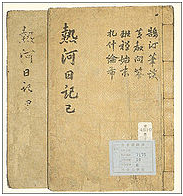 鵠汀筆談
黃敎問答
班禪始末
札什倫布
熱河日記 己
熱河日記 己